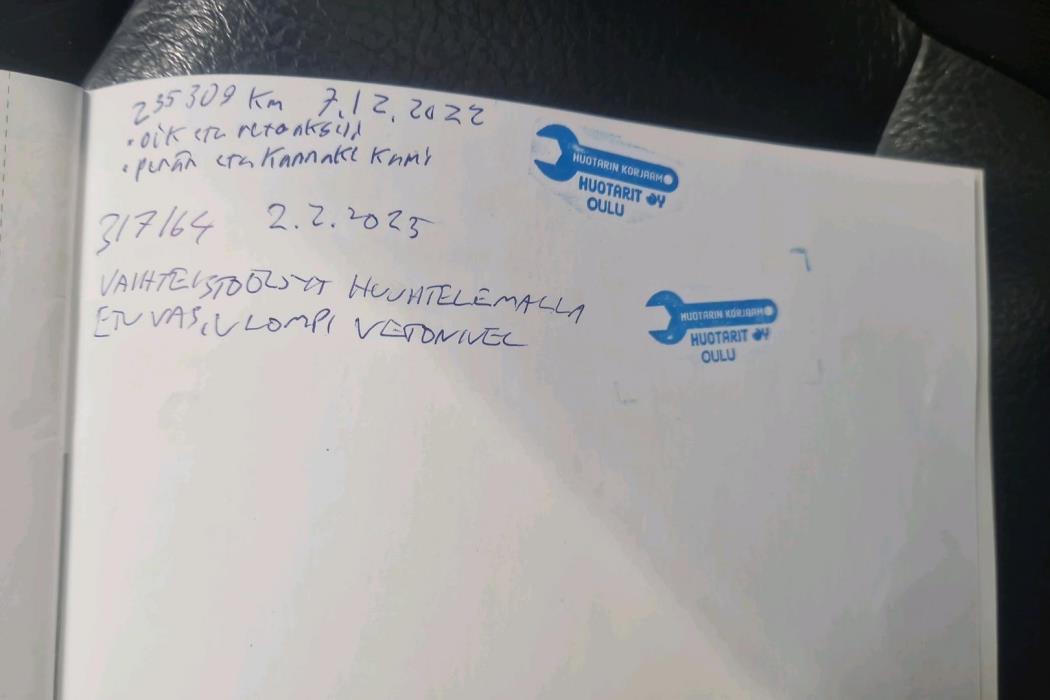 235309 Km 7.12.2022
• oik etu vetoakseli
• perän etu Kannake Kumi
HUOTARIN KORJAAMO
HUOTARIT OY
OULU
317164 2.2.2025
VAIHTEISTOÖLJYT HUUHTELEMALLA
ETU VAS, ULOMPI VETONIVEL
HUOTARIN KORJAAMO
HUOTARIT OY
OULU